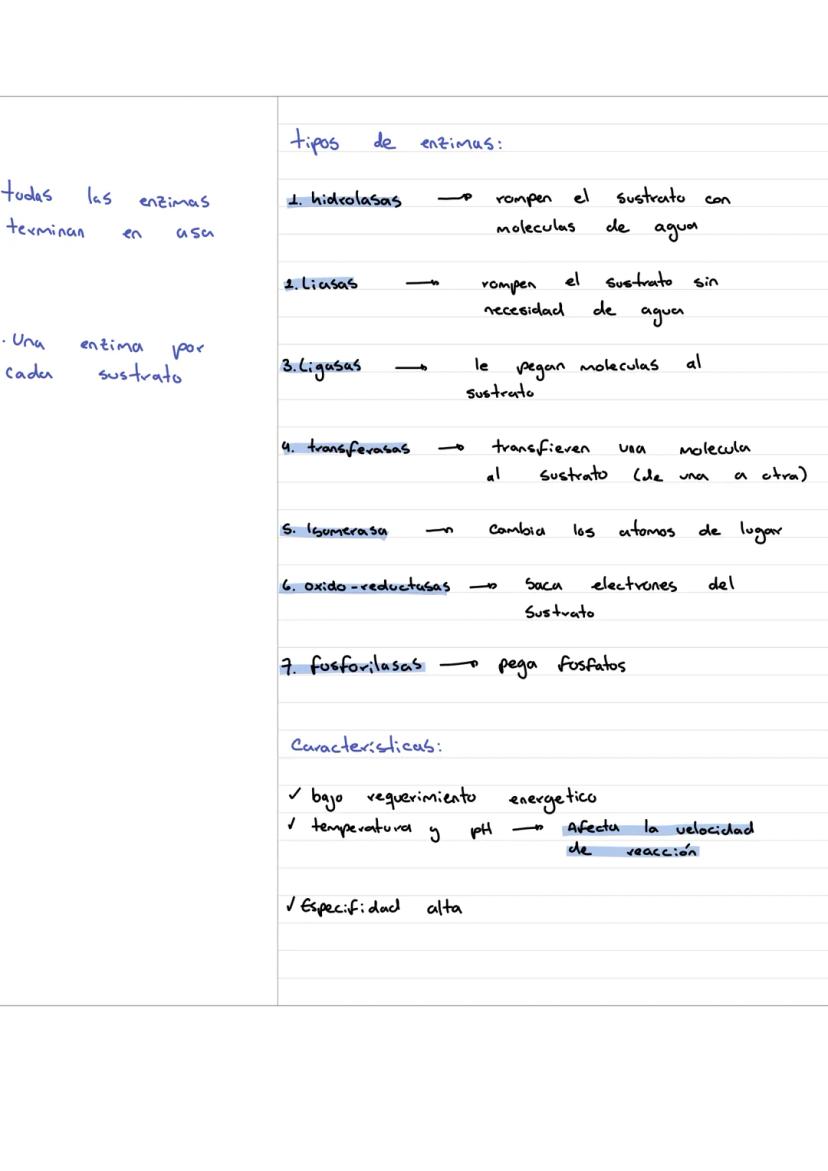 todas las enzimas
terminan en asa
. Una enzima por
cada sustrato
tipos de enzimas:
1. hidrolasas → rompen el sustrato con
moleculas de agua
2. Liasas → rompen el sustrato sin
necesidad de agua
3. Ligasas → le pegan moleculas al
sustrato
4. transferasas → transfieren una molecula
al sustrato (de una a otra)
5. Isomerasa → Cambia los atomos de lugar
6. oxido-reductasas → Saca electrones del
Sustrato
7. fosforilasas → pega fosfatos
Características:
✓ bajo requerimiento energetico
✓ temperatura y pH → Afecta la velocidad
de reacción
✓ Especifidad alta